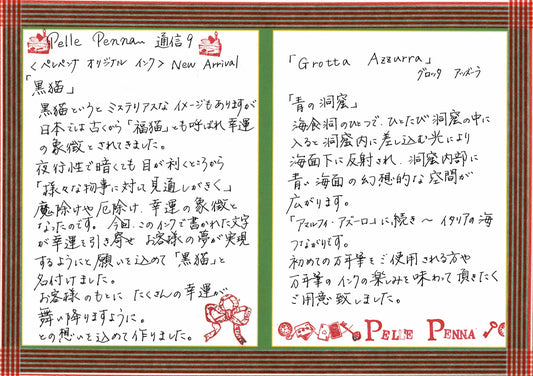 Pelle Pennaん 通信9
＜ペレペンナ オリジナル インク＞ New Arrival
「黒猫」
黒猫というと ミステリアスな イメージもありますが
日本では古くから「福猫」とも呼ばれ 幸運
の象徴とされてきました。
夜行性で暗くても 目が利くところから
「様々な物事に対して 見通しがきく」
魔除けや 厄除け、幸運の象徴と
なったのです。 今回、このインクで書かれた文字
が幸運を引き寄せ お客様の夢が実現
するようにと願いを込めて「黒猫」と
名付けました。
お客様のもとに たくさんの幸運が
舞い降りますように。
との想いを込めて作りました。
「Grotta Azzurra」
グロッタ アッズーラ
「青の洞窟」
海食洞のひとつで、ひとたび洞窟の中に
入ると洞窟内に差し込む光により
海面下に反射され、洞窟内部に
青い海面の幻想的な空間が
広がります。
「アマルフィ・アズーロ」に続き〜 イタリアの海
つながりです。
初めての万年筆をご使用される方や
万年筆のインクの楽しみを味わって頂きたく
ご用意致しました。
PELLE PENNA